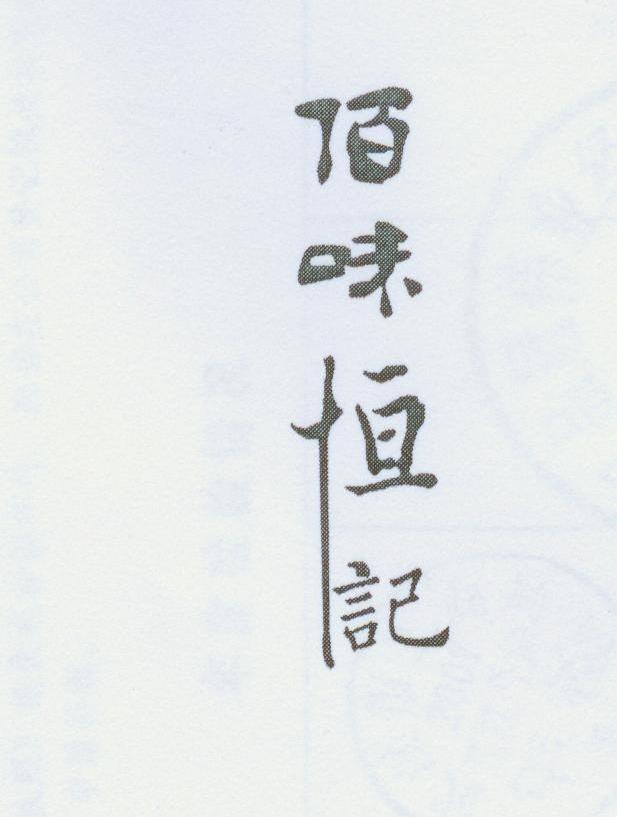 佰味恒記